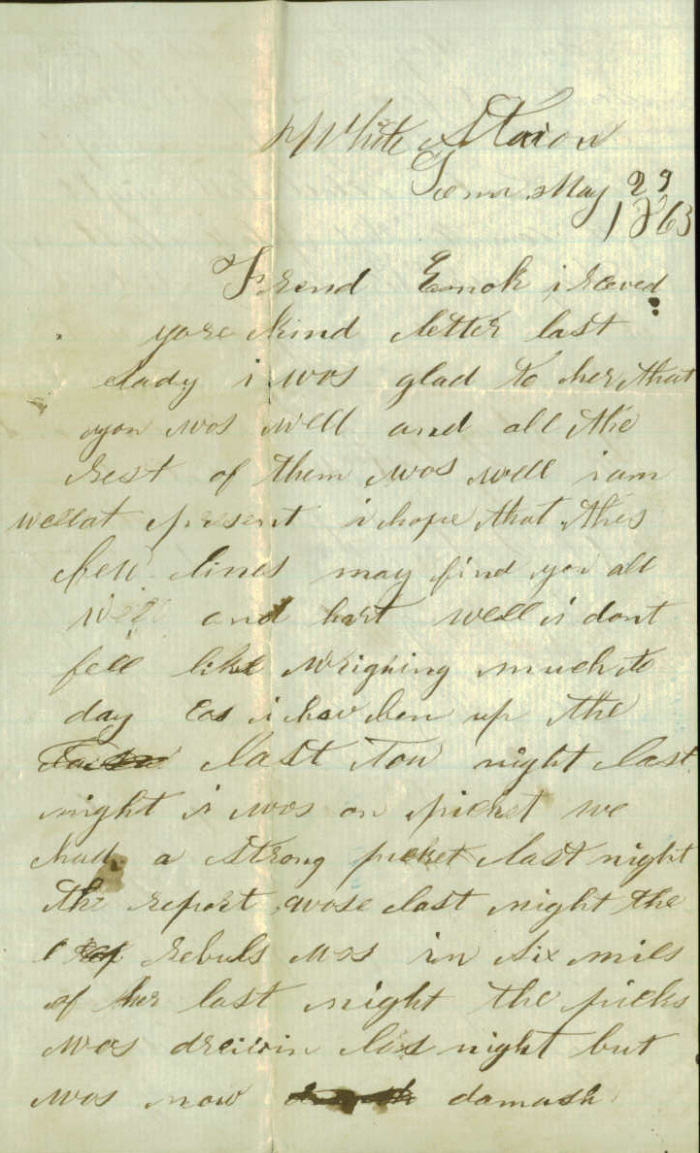 White Staion
Tenn May 29
1863
Frend Enok i receved
yore kind letter last
i was glad to her that
you was well and all the
rest of them was well i am
well at present i hope that thes
few lines may find you all
well and hart well i dont
fell like wrighing much to
day as i hav ben up the
last tow night last
night i was on picket we
had a strong picket last night
the report wose last night the
rebuls was in six mils
of her last night the picks
was dreiwin last night but
was now damash